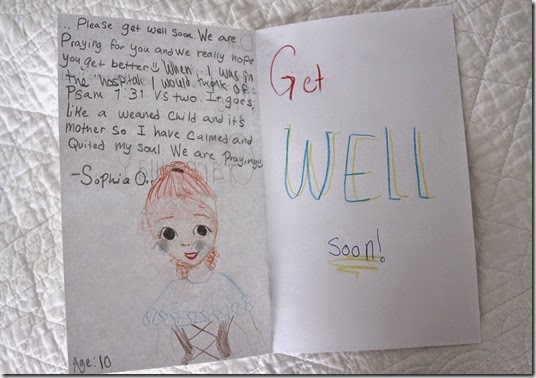 ... Please get well soon. We are
Praying for you and we really hope
you get better!! When I was in
the "hospital I would think of
Psam 1'31 vs two. It goes,
like a weaned child and it's
mother so I have calmed and
Quited my soul We are praying!
-Sophia O..
Age: 10
Get
WELL
soon!